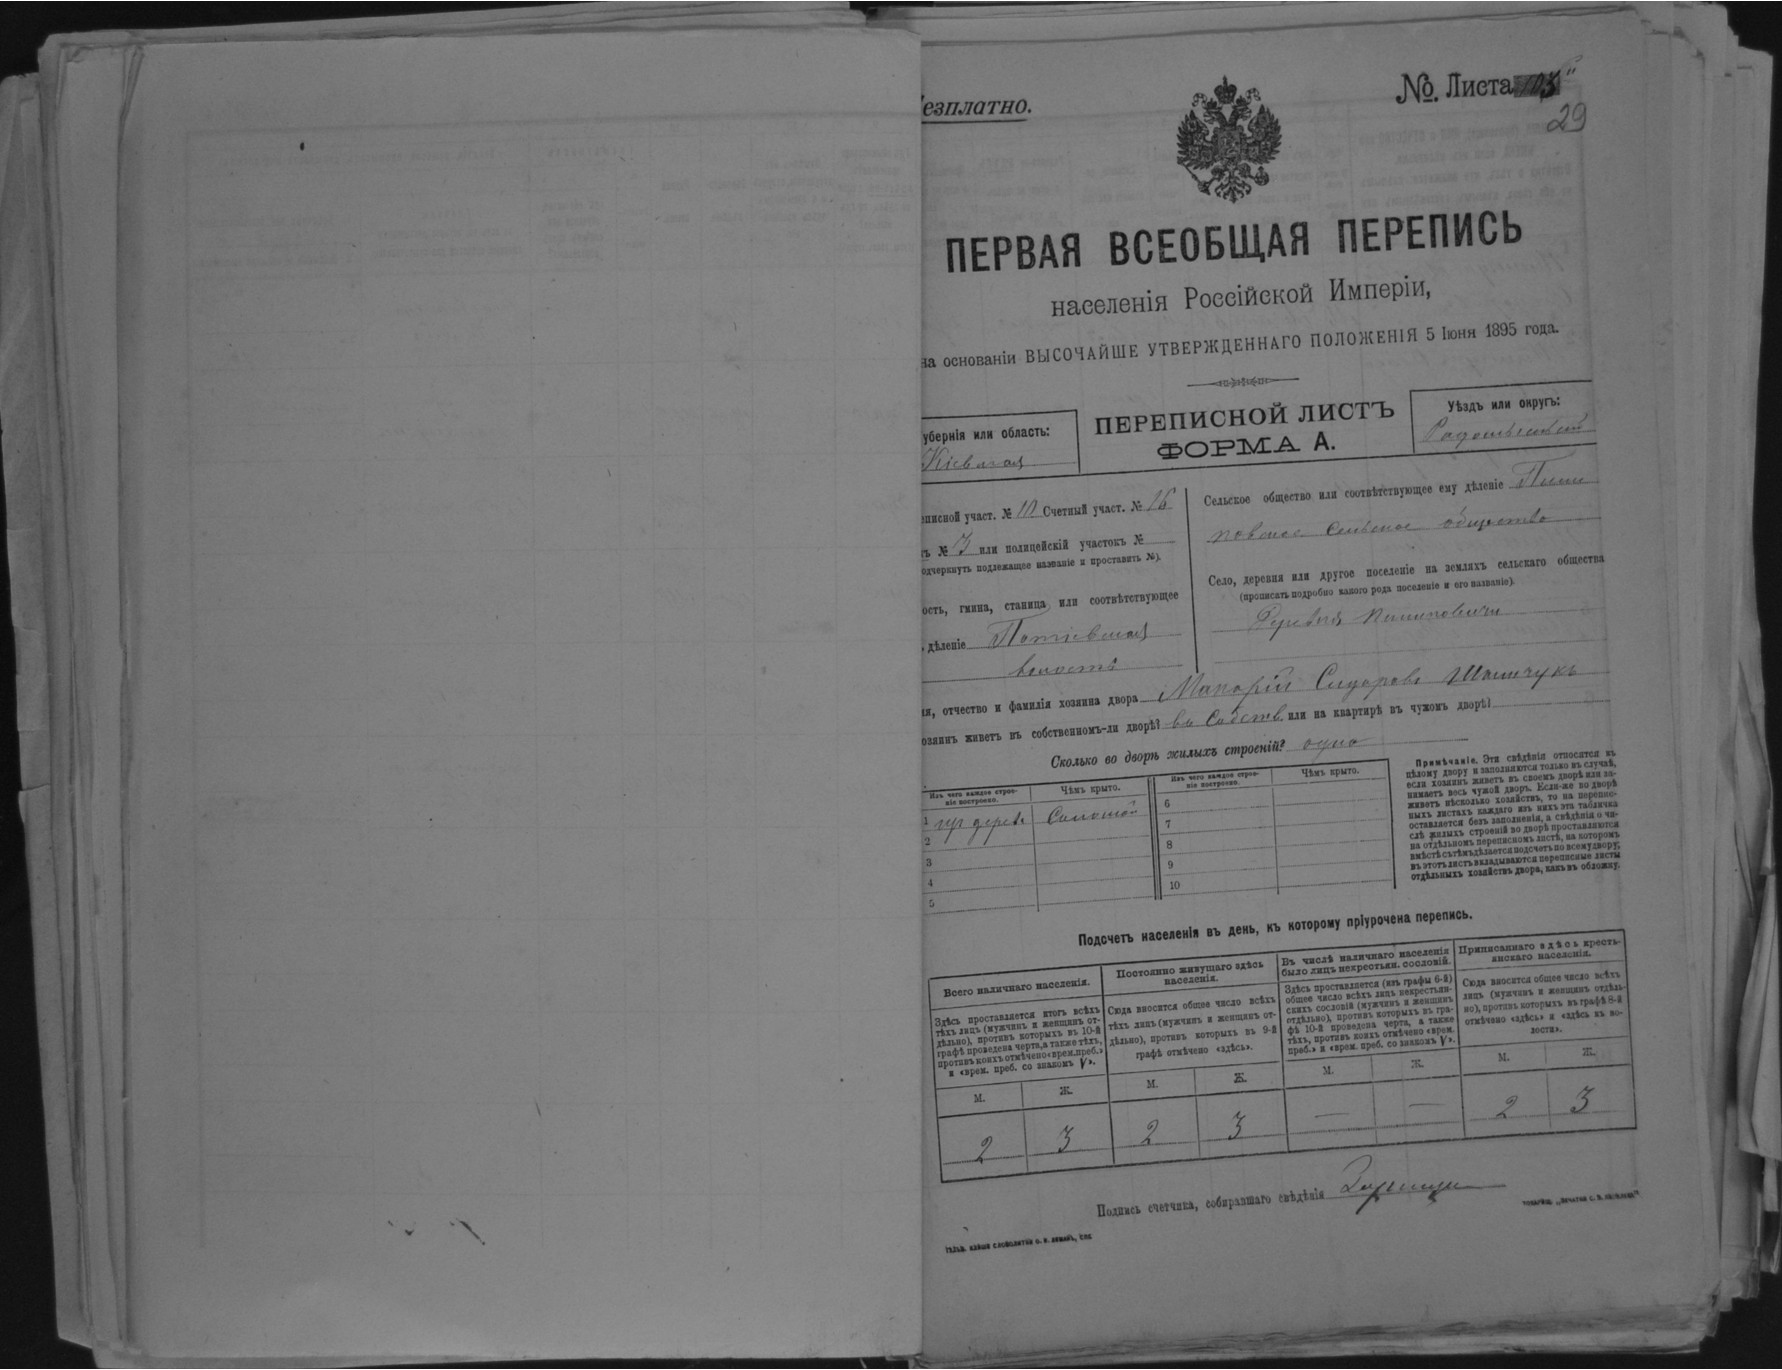 езплатно.
№ Листа
29
ПЕРВАЯ ВСЕОБЩАЯ ПЕРЕПИСЬ
населенія Россійской Имперіи,
на основаніи ВЫСОЧАЙШЕ УТВЕРЖДЕННАГО ПОЛОЖЕНІЯ 5 Іюня 1895 года.
убернія или область:
Кіевская
ПЕРЕПИСНОЙ ЛИСТЪ
ФОРМА А.
Уѣздъ или округъ:
Радомысльскій
еписной участ. № 10 Счетный участ. № 16
ъ № 3 или полицейскій участокъ №
одчеркнуть подлежащее названіе и проставить №).
ость, гмина, станица или соотвѣтствующее
дѣленіе Потіевская
волость
Сельское общество или соотвѣтствующее ему дѣленіе Пили
повское сельское общество
Село, деревня или другое поселеніе на земляхъ сельскаго общества
(прописать подробно какого рода поселеніе и его названіе).
Деревня Пилиповичи
я, отчество и фамилія хозяина двора Макарій Сидоровъ
озяинъ живетъ въ собственномъ-ли дворѣ? въ Собств. или на квартирѣ въ чужомъ дворѣ?
Сколько во дворѣ жилыхъ строеній? одно
Изъ чего каждое строе-
ніе построено.
Чѣмъ крыто.
Изъ чего каждое строе-
ніе построено.
Чѣмъ крыто.
1 изъ дерева Соломой
2
3
4
5
6
7
8
9
10
Примѣчаніе. Эти свѣдѣнія относятся къ
цѣлому двору и заполняются только въ случаѣ,
если хозяинъ живетъ въ своемъ дворѣ или за-
нимаетъ весь чужой дворъ. Если-же во дворѣ
живетъ нѣсколько хозяйствъ, то на перепис-
ныхъ листахъ каждаго изъ нихъ эта табличка
оставляется безъ заполненія, а свѣдѣнія о чи-
слѣ жилыхъ строеній во дворѣ проставляются
на отдѣльномъ переписномъ листѣ, на которомъ
вмѣстѣ съ тѣмъ дѣлается подсчетъ по всему двору;
въ этотъ листъ вкладываются переписные листы
отдѣльныхъ хозяйствъ двора, какъ въ обложку.
Подсчетъ населенія въ день, къ которому пріурочена перепись.
Всего наличнаго населенія.
Здѣсь проставляется итогъ всѣхъ
тѣхъ лицъ (мужчинъ и женщинъ от-
дѣльно), противъ которыхъ въ 10-й
графѣ проведена черта, а также тѣхъ,
противъ коихъ отмѣчено «врем. преб.»
и «врем. преб. со знакомъ V».
М. Ж.
2 3
Постоянно живущаго здѣсь
населенія.
Сюда вносится общее число всѣхъ
тѣхъ лицъ (мужчинъ и женщинъ от-
дѣльно), противъ которыхъ въ 9-й
графѣ отмѣчено «здѣсь».
М. Ж.
2 3
Въ числѣ наличнаго населенія
было лицъ некрестьян. сословій.
Здѣсь проставляется (изъ графы 6-й)
общее число всѣхъ лицъ некрестьян-
скихъ сословій (мужчинъ и женщинъ
отдѣльно), противъ которыхъ въ гра-
фѣ 10-й проведена черта, а также
тѣхъ, противъ коихъ отмѣчено «врем.
преб.» и «врем. преб. со знакомъ V».
М. Ж.
— —
Приписаннаго здѣсь кресть-
янскаго населенія.
Сюда вносится общее число всѣхъ
лицъ (мужчинъ и женщинъ отдѣль-
но), противъ которыхъ въ графѣ 8-й
отмѣчено «здѣсь» и «здѣсь къ во-
лости».
М. Ж.
2 3
Подпись счетчика, собиравшаго свѣдѣнія